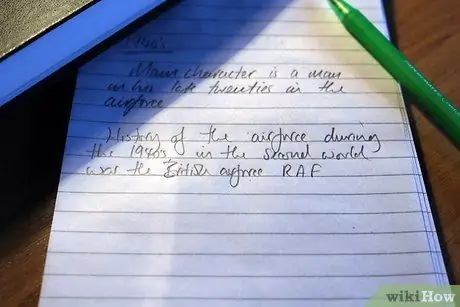 1940's
Main character is a man
in his late twenties in the
airforce
History of the airforce during
the 1940s in the second world
war the British airforce RAF
wikiHow